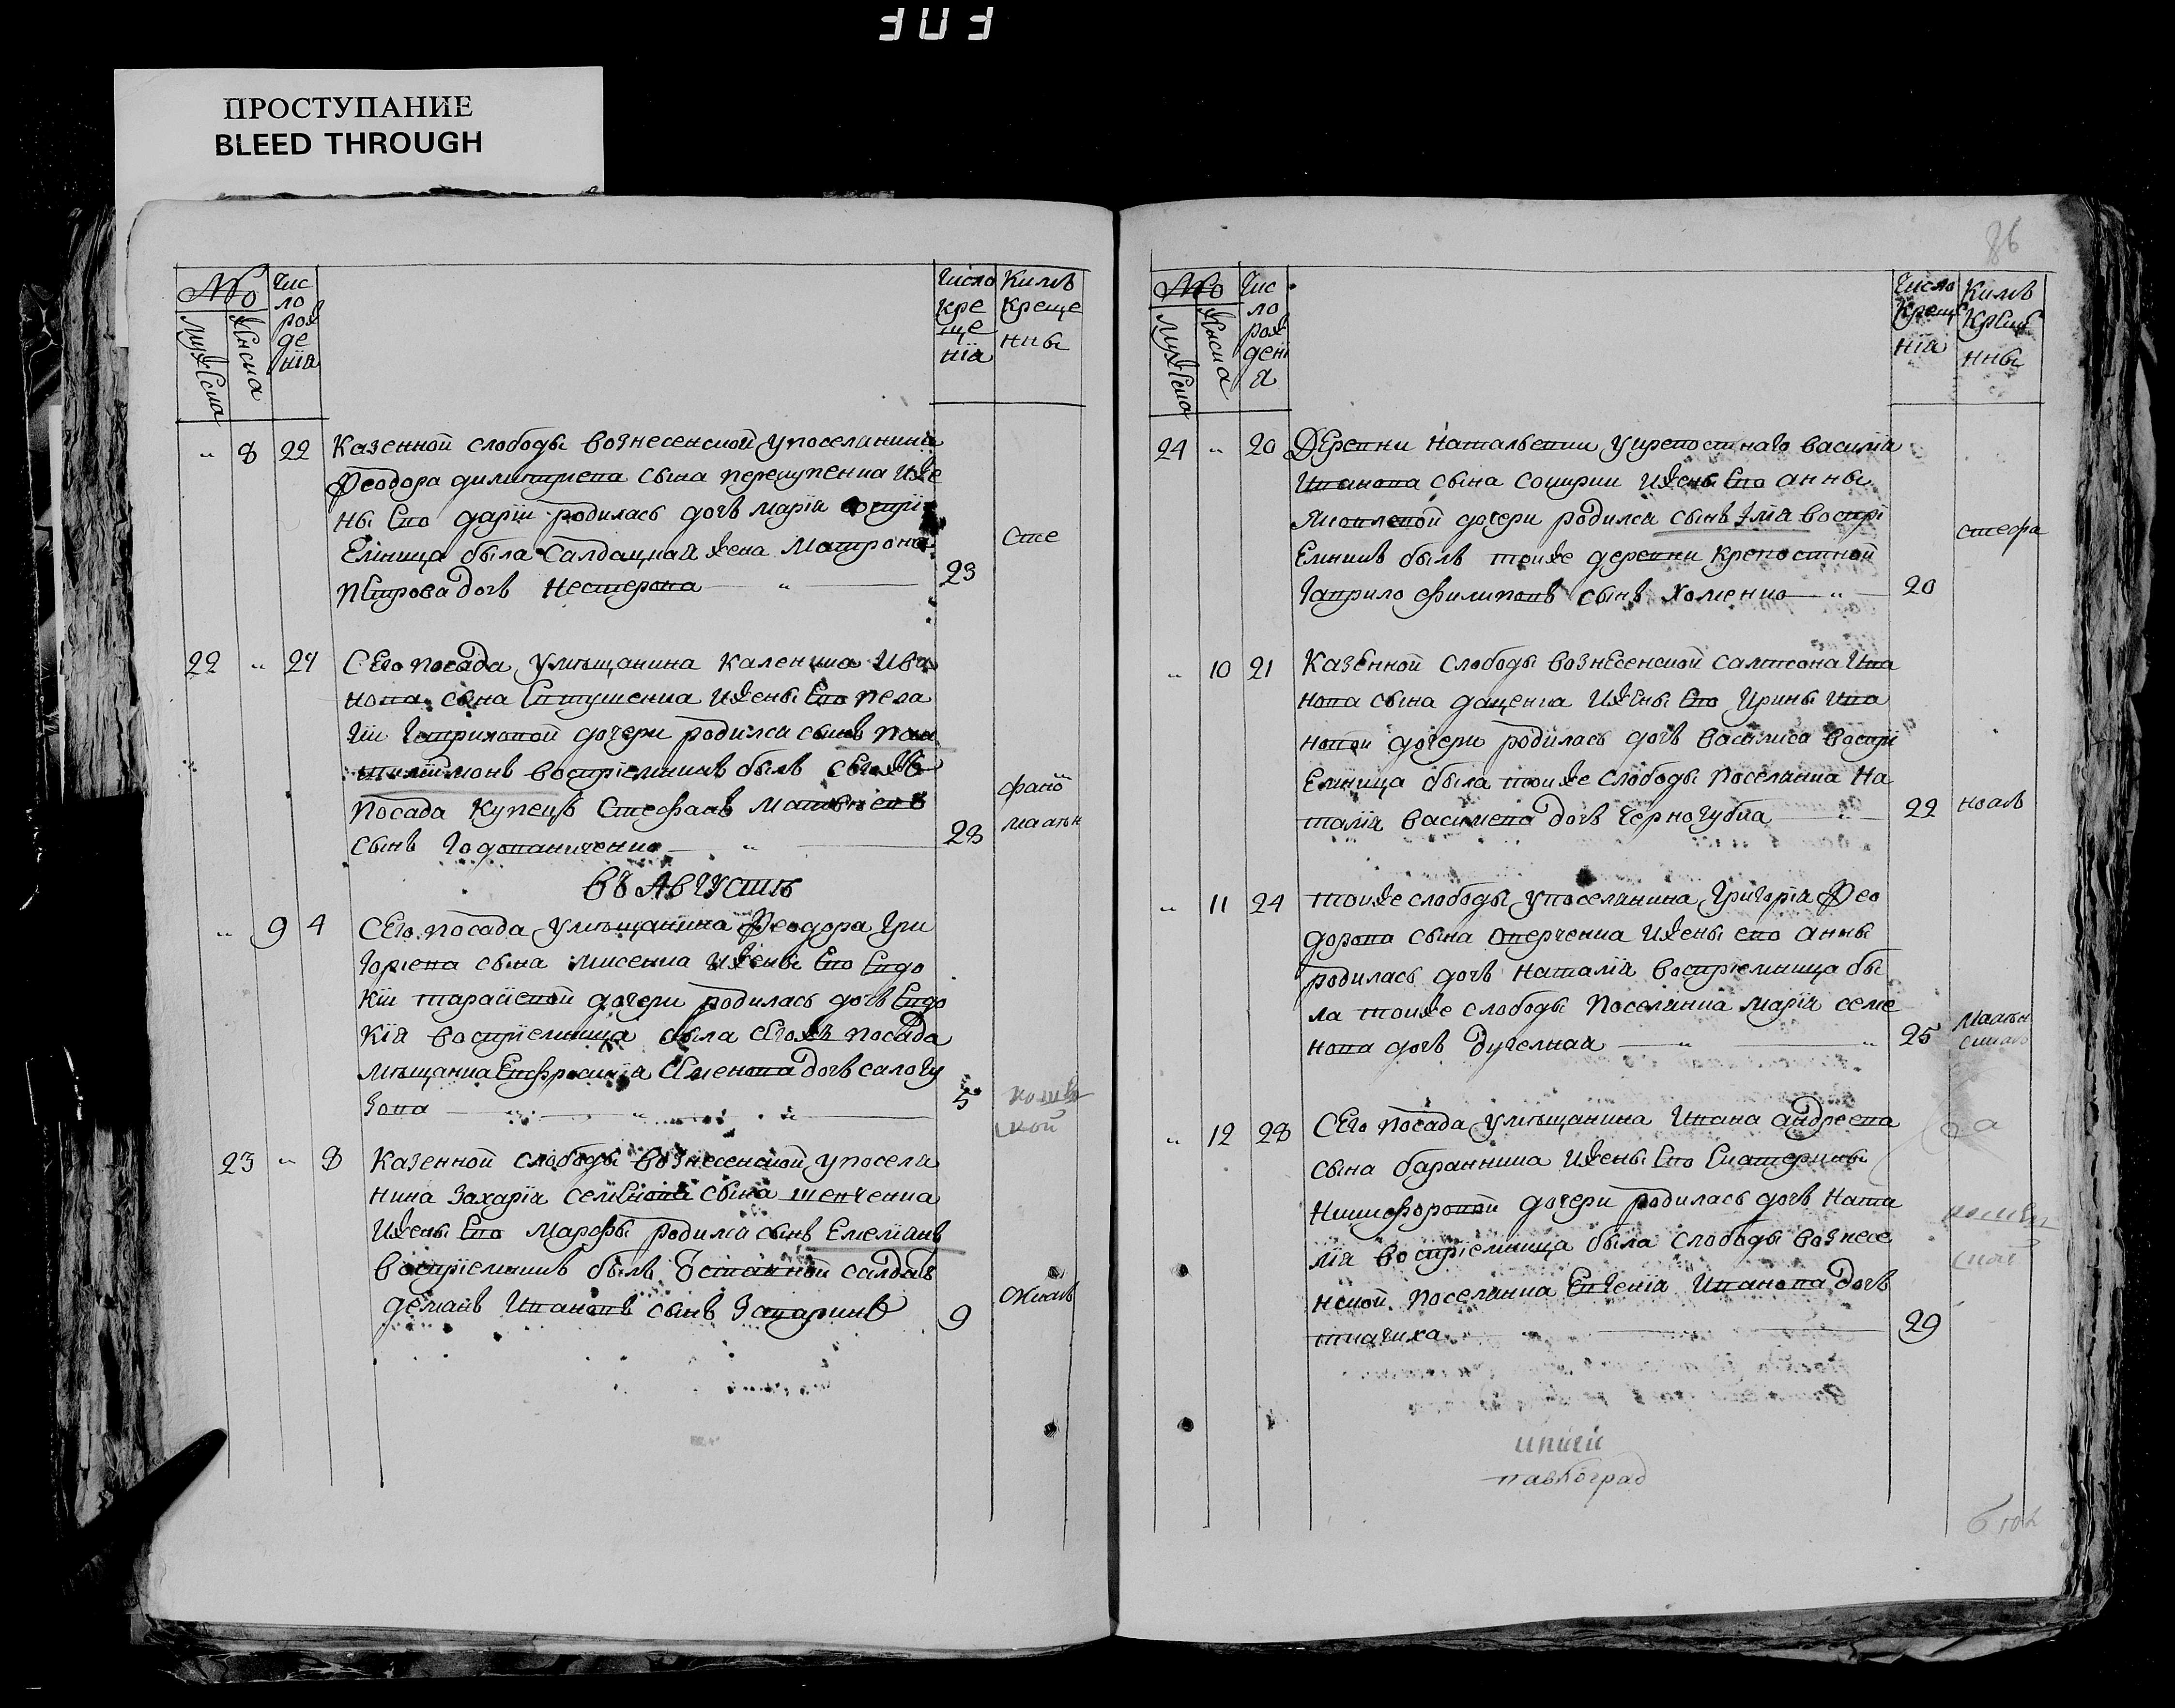 303
ПРОСТУПАНИЕ
BLEED THROUGH
№
Чис
ло
рож
де
нїя
Мужеска
Женска
Число
кре
ще
нїя
Кимъ
Креще
нны
" 8 22 Казенной слободы вознесенской упоселянина
Феодора димитриева сына
ны Его дарїи родилась дочь марїя воспрї
Емница была Салдацкая жена Матрона
Петрова дочь Нестерова " 23
Сте
22 " 27 Сего посада умѣщанина каленика Ива
нова сына Евтушенка Ижены Его Пела
гїи Гавриловой дочери родился сынъ Пан
тилїимонъ воспрїемникъ былъ Сегожъ
посада Купецъ Стефанъ Матвѣевъ
сынъ " 28
Въ Августѣ
" 9 4 Сего посада умѣщанина Феодора Гри
горїева сына лисенка Ижены Его Евдо
кїи тарасїевой дочери родилась дочь Евдо
кїя воспрїемница была Сегожъ посада
мѣщанка Евфросинїя Семенова дочь салогу
бова 5
23 " 8 Казенной слободы вознесенской упоселя
нина Захарїя семенова сына шевченка
Ижены Его Марфы родился сынъ Емелїанъ
воспрїемникъ былъ Отставной салдатъ
демянъ Ивановъ сынъ 9
86
№
Чис
ло
рож
денї
я
Мужеска
Женска
Число
Креще
нїя
Кимъ
Креще
нны
24 " 20 Деревни Натальевки укрепостнаго василїя
Иванова сына Ижены Его анны
Яковлевой дочери родился сынъ Илїя воспрї
Емникъ былъ тоиже деревни крепостной
Гаврило Филиповъ сынъ Хоменко " 20
стефа
" 10 21 Казенной слободы вознесенской самсона Ива
нова сына даценка Ижены Его Ирины Ива
новой дочери родилась дочь василиса воспрї
Емница была тоиже слободы поселянка На
талїя василева дочь Черногубка 22
" 11 24 тоиже слободы упоселянина Григорїя Фео
дорова сына Ижены его анны
родилась дочь Наталїя воспрїемница бы
ла тоиже слободы поселянка марїя семе
нова дочь " 25
" 12 28 Сего посада умѣщанина Ивана андреева
сына баранника Ижены Его Екатерины
Никифоровой дочери родилась дочь Ната
лїя воспрїемница была слободы вознесе
нской поселянка Евгенїя Иванова дочь
ткачиха 29
павлоград